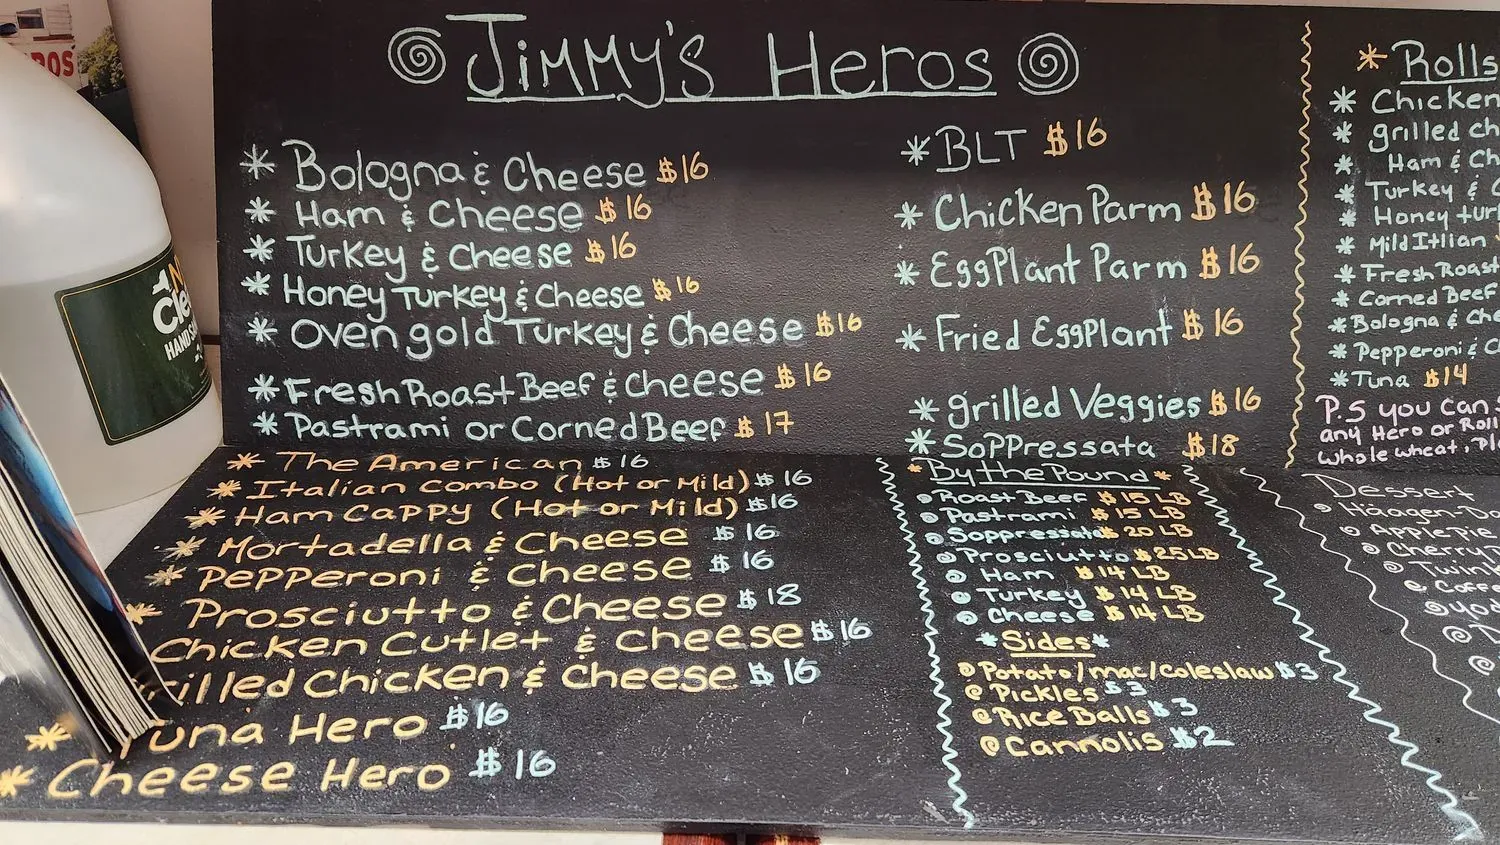 Jimmy's Heros
* Bologna & Cheese $16
* Ham & Cheese $16
* Turkey & Cheese $16
* Honey Turkey & Cheese $16
* Oven gold Turkey & Cheese $16
* Fresh Roast Beef & Cheese $16
* Pastrami or Corned Beef $17
* The American $16
* Italian Combo (Hot or Mild) $16
* Ham Cappy (Hot or Mild) $16
* Mortadella & Cheese $16
* Pepperoni & Cheese $16
* Prosciutto & Cheese $18
Chicken Cutlet & Cheese $16
rilled Chicken & Cheese $16
* Tuna Hero $16
* Cheese Hero $16
* BLT $16
* Chicken Parm $16
* EggPlant Parm $16
* Fried EggPlant $16
* grilled Veggies $16
* Soppressata $18
* By the Pound *
Roast Beef $15 LB
Pastrami $15 LB
Soppressata $20 LB
Prosciutto $25 LB
Ham $14 LB
Turkey $14 LB
Cheese $14 LB
* Sides *
Potato/mac/coleslaw $3
Pickles $3
Rice Balls $3
Cannolis $2
* Rolls
* Chicken
* grilled ch
* Ham & Ch
* Turkey & C
* Honey tur
* Mild Itlian
* Fresh Roast
* Corned Beef
* Bologna & Che
* Pepperoni & C
* Tuna $14
P.S you can
any Hero or Roll
whole wheat, Pl
Dessert
Häagen-Da
Apple Pie
Cherry
Twink
Coffe
yod
D
ROS
Cle
HAND SA